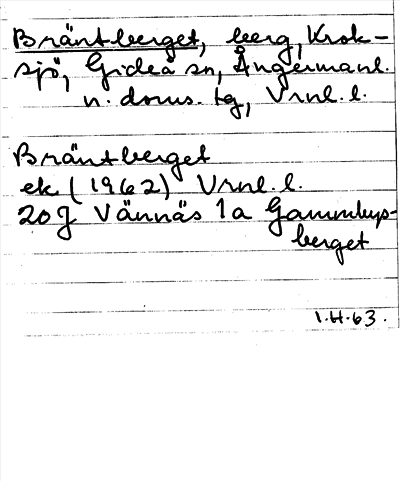 Bräntberget, berg, Krok-
sjö, Gideå sn, Ångermanl.
n. doms. tg, Vrnl. l.
Bräntberget
ek (1962) Vrnl. l.
20 J Vännäs 1a Gammbyn-
berget
I.H.63.